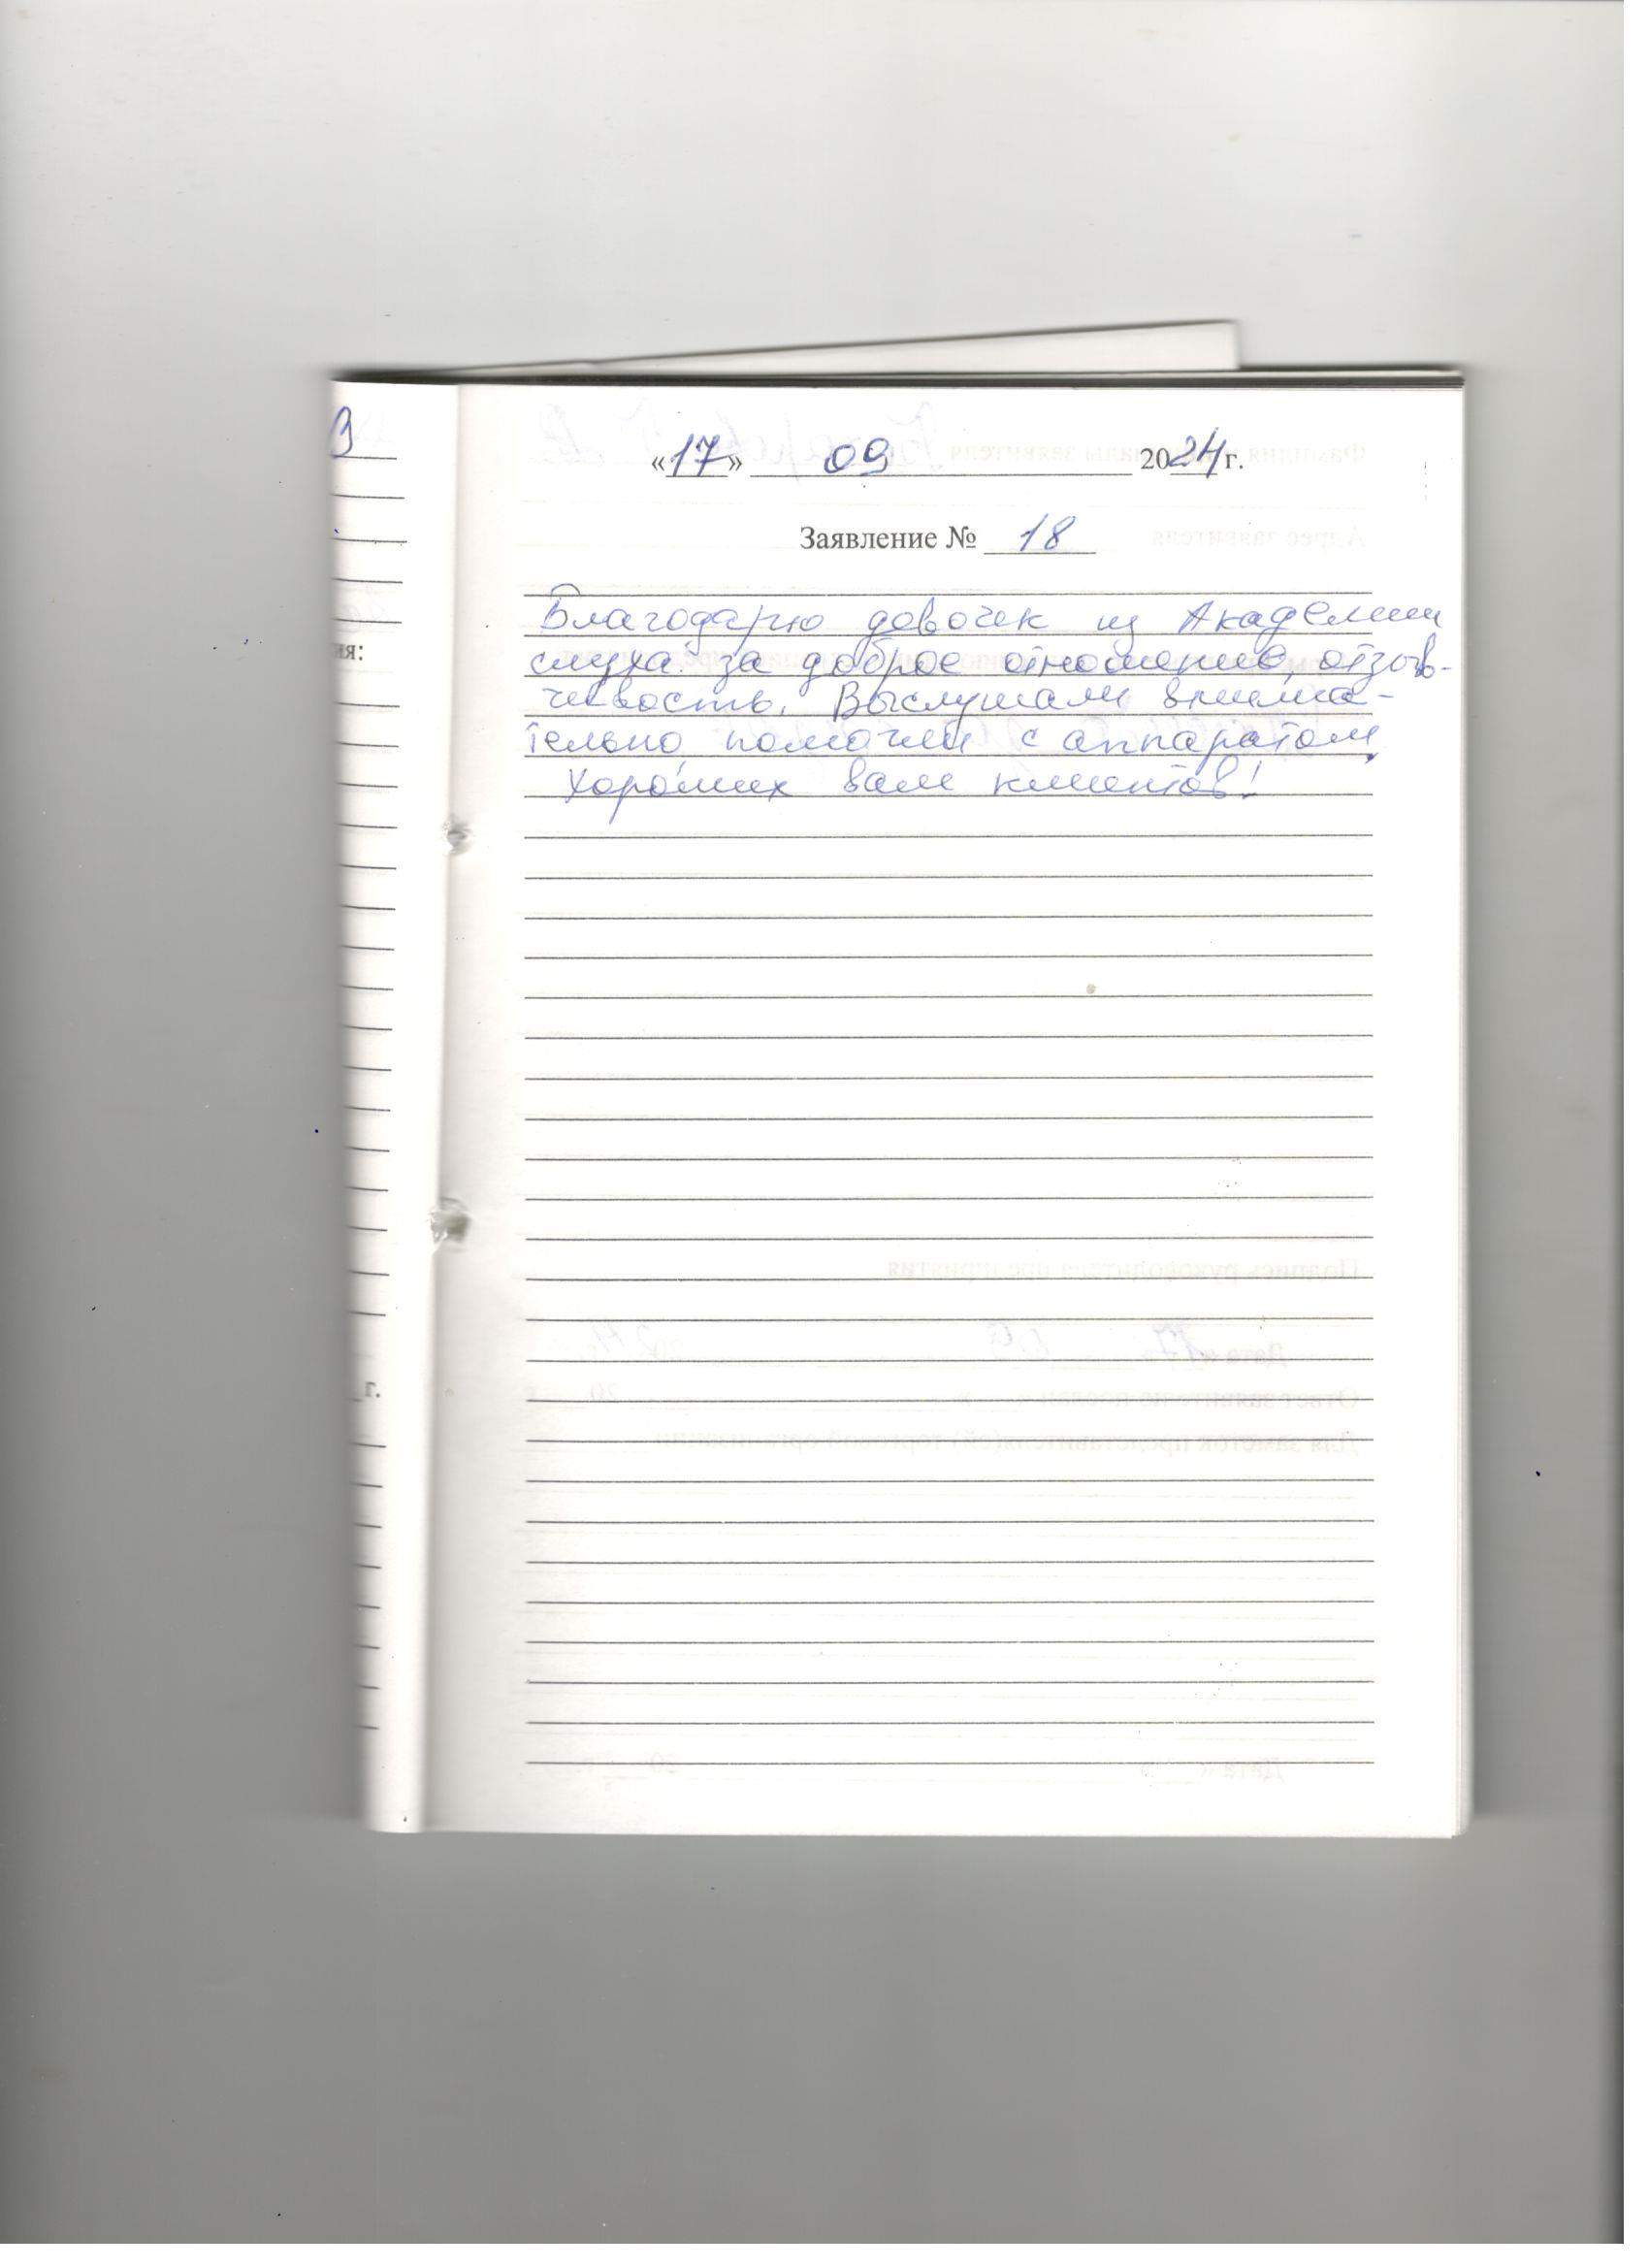 «17» 09 2024 г.
Заявление № 18
Благодарю девочек из Академии
слуха за доброе отношение, отзыв-
чивость. Выслушали внима-
тельно, помогли с аппаратом,
Хороших вам клиентов!
ия:
г.